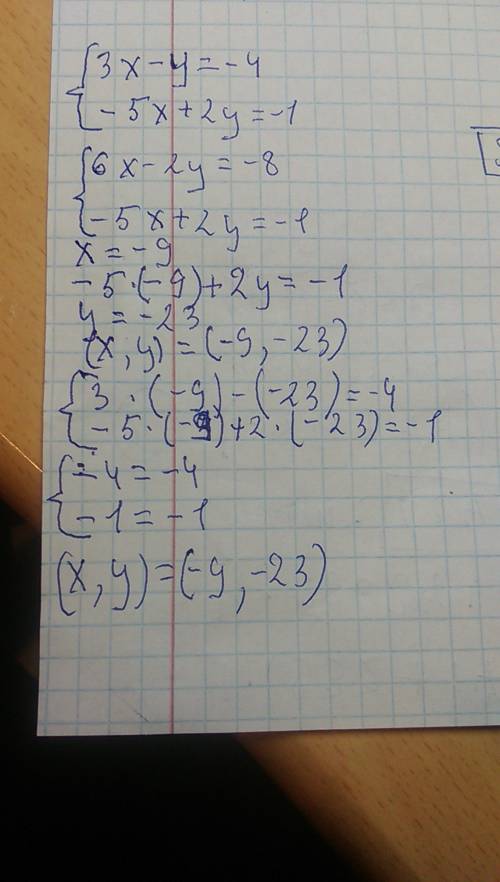 {3x-y=-4
{-5x+2y=-1
{6x-2y=-8
{-5x+2y=-1
x=-9
-5·(-9)+2y=-1
y=-23
(x,y)=(-9,-23)
{3·(-9)-(-23)=-4
{-5·(-9)+2·(-23)=-1
{-4=-4
{-1=-1
(x,y)=(-9,-23)